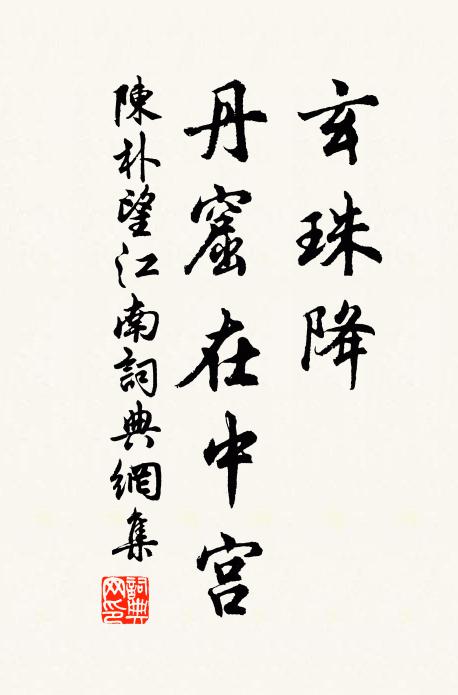 玄珠降
丹窟在中宮
陳朴望江南詞典網集
詞典網印